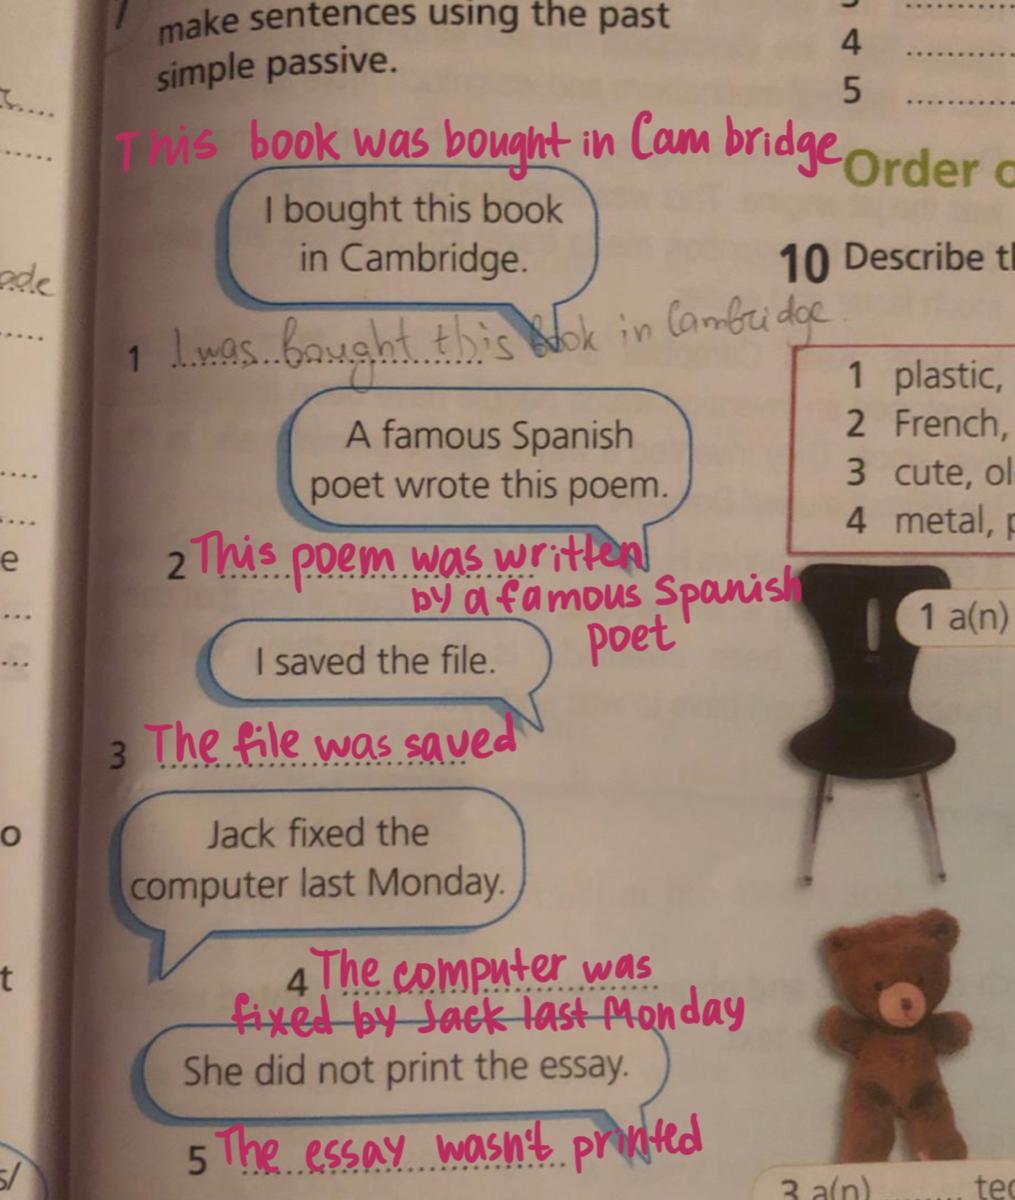 make sentences using the past
simple passive.
This book was bought in Cambridge
I bought this book
in Cambridge.
1 I was bought this book in Cambridge.
A famous Spanish
poet wrote this poem.
2 This poem was written
by a famous Spanish
poet
I saved the file.
3 The file was saved
Jack fixed the
computer last Monday.
4 The computer was
fixed by Jack last Monday
She did not print the essay.
5 The essay wasn't printed
4
5
Order
10 Describe
1 plastic,
2 French,
3 cute,
4 metal,
1 a(n)
3 a(n)